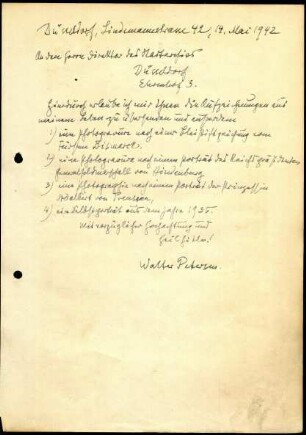 Düsseldorf, Lindemannstrasse 42, 14. Mai 1942
An den Herrn Direktor des Stadtarchivs
Düsseldorf
Ehrenhof 3.
Hierdurch erlaube ich mir Ihnen die Aufzeichnungen aus
meinem Leben zu übersenden und ausserdem
1) eine Photogravure nach einer Bleistiftzeichnung vom
Fürsten Bismarck,
2) eine Photogravure nach einem Porträt des Reichspräsidenten
Generalfeldmarschall von Hindenburg,
3) eine Photographie nach einem Porträt der Prinzessin
Adalbert von Preussen,
4) ein Selbstporträt aus dem Jahre 1925.
Mit vorzüglicher Hochachtung und
Heil Hitler!
Walter Petersen.